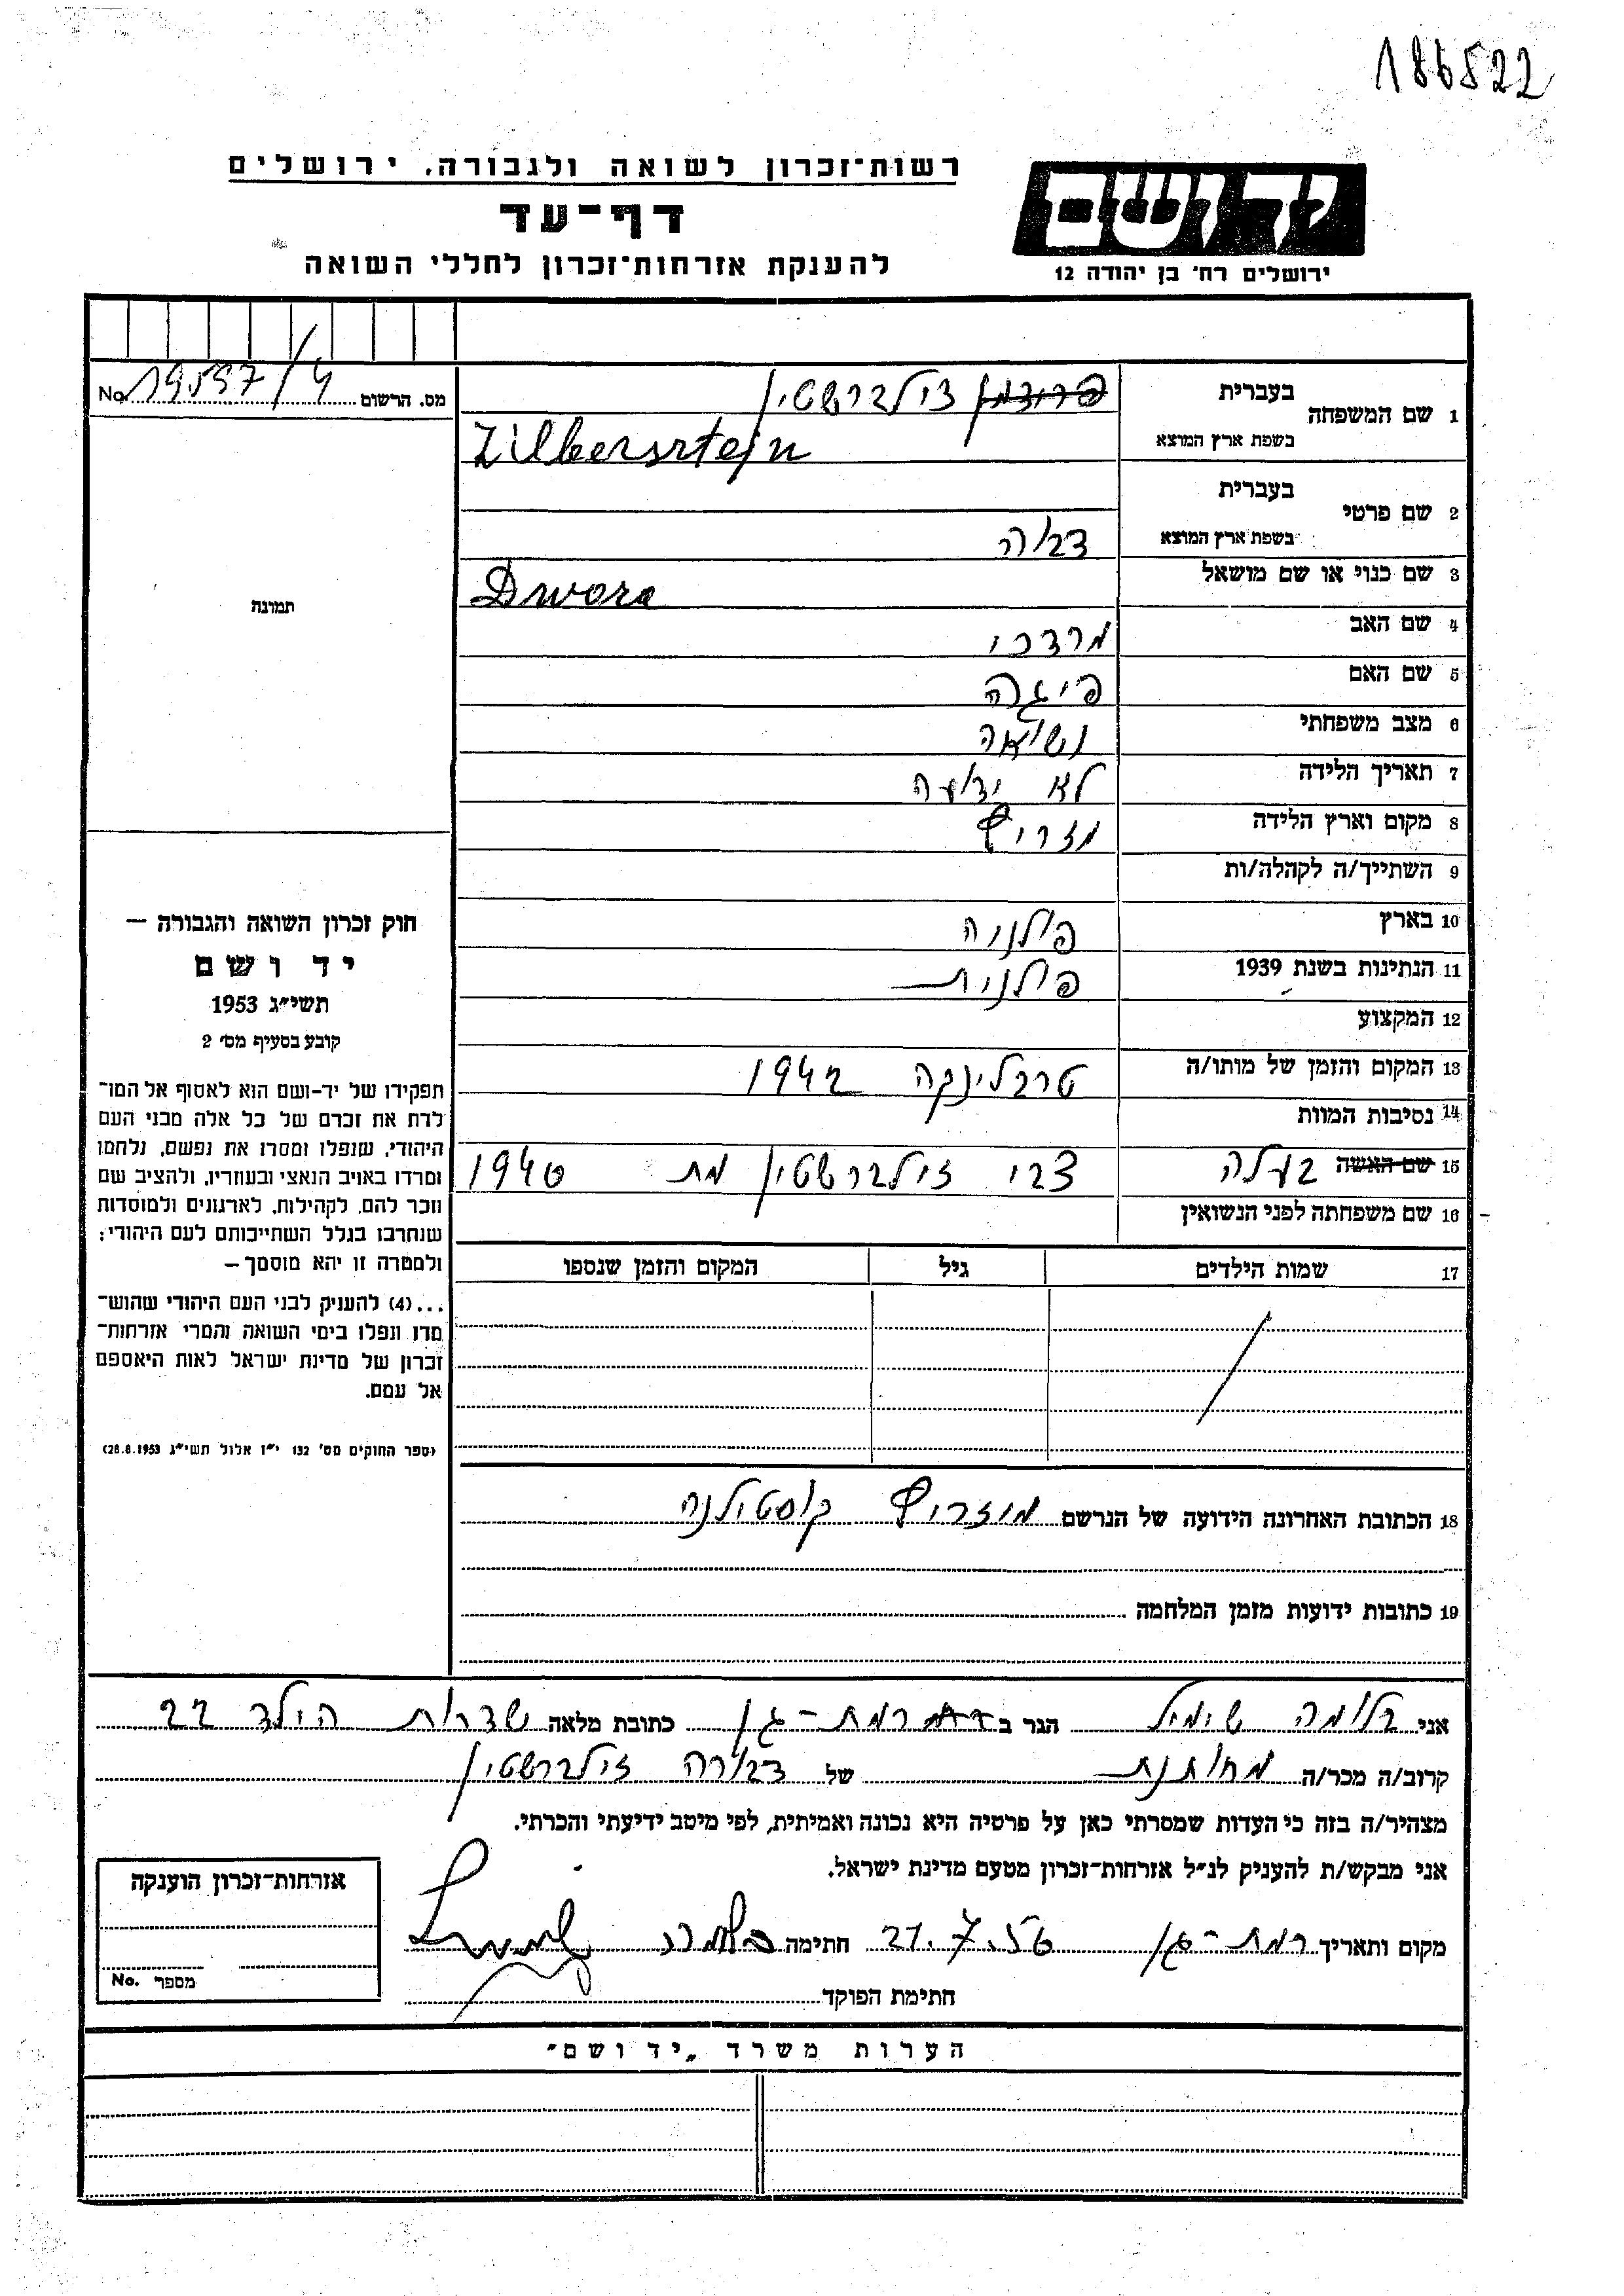 186522
רשות־זכרון לשואה ולגבורה, ירושלים
דף־עד
להענקת אזרחות־זכרון לחללי השואה
יד ושם
ירושלים רח' בן יהודה 12
מס. הרשום 19597/4 No.
1 שם המשפחה בעברית פרידמן זילברשטין
בשפת ארץ המוצא Zilbersrtejn
2 שם פרטי בעברית
בשפת ארץ המוצא דבו/ה
3 שם כנוי או שם מושאל Dwora
4 שם האב מרדכי
5 שם האם פיגה
6 מצב משפחתי נשואה
7 תאריך הלידה לא ידועה
8 מקום וארץ הלידה מזריץ
9 השתייך/ה לקהלה/ות
10 בארץ פולניה
11 הנתינות בשנת 1939 פולנית
12 המקצוע
13 המקום והזמן של מותו/ה טרבלינקה 1942
14 נסיבות המוות
15 שם האשה בעלה צבי זילברשטין מת 1940
16 שם משפחתה לפני הנשואין
17 שמות הילדים גיל המקום והזמן שנספו
תמונה
חוק זכרון השואה והגבורה —
יד ושם
תשי״ג 1953
קובע בסעיף מס׳ 2
תפקידו של יד-ושם הוא לאסוף אל המו־
לדת את זכרם של כל אלה מבני העם
היהודי, שנפלו ומסרו את נפשם, נלחמו
ומרדו באויב הנאצי ובעוזריו, ולהציב שם
וזכר להם, לקהילות, לארגונים ולמוסדות
שנחרבו בגלל השתייכותם לעם היהודי;
ולמטרה זו יהא מוסמך —
...(4) להעניק לבני העם היהודי שהוש־
מדו ונפלו בימי השואה והמרי אזרחות־
זכרון של מדינת ישראל לאות היאספם
אל עמם.
(ספר החוקים מס׳ 132 י״ז אלול תשי״ג 28.8.1953)
18 הכתובת האחרונה הידועה של הנרשם מוזריץ קוסטילנה
19 כתובות ידועות מזמן המלחמה
אני בלומה שימיל הגר ב רמת-גן כתובת מלאה שדרות הילד 22
קרוב/ה מכר/ה מחותנת של דבורה זילברשטין
מצהיר/ה בזה כי העדות שמסרתי כאן על פרטיה היא נכונה ואמיתית, לפי מיטב ידיעתי והכרתי.
אני מבקש/ת להעניק לנ״ל אזרחות־זכרון מטעם מדינת ישראל.
מקום ותאריך רמת-גן 21.7.56 חתימה
חתימת הפוקד
אזרחות־זכרון הוענקה
מספר No.
הערות משרד „יד ושם״